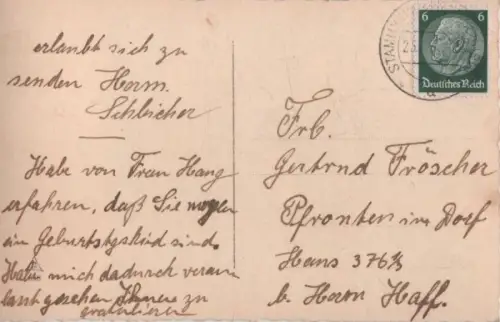 erlaubt sich zu
senden Herm.
Schleicher
Habe von Frau Haug
erfahren, daß Sie morgen
ein Geburtstgskind sind.
Habe mich dadurch veran
last gesehen Ihnen zu
gratulieren
6 6
Deutsches Reich
STAMM
Frl.
Gertrud Fröscher
Pfronten im Dorf
Haus 376⅓
b. Herrn Haff.